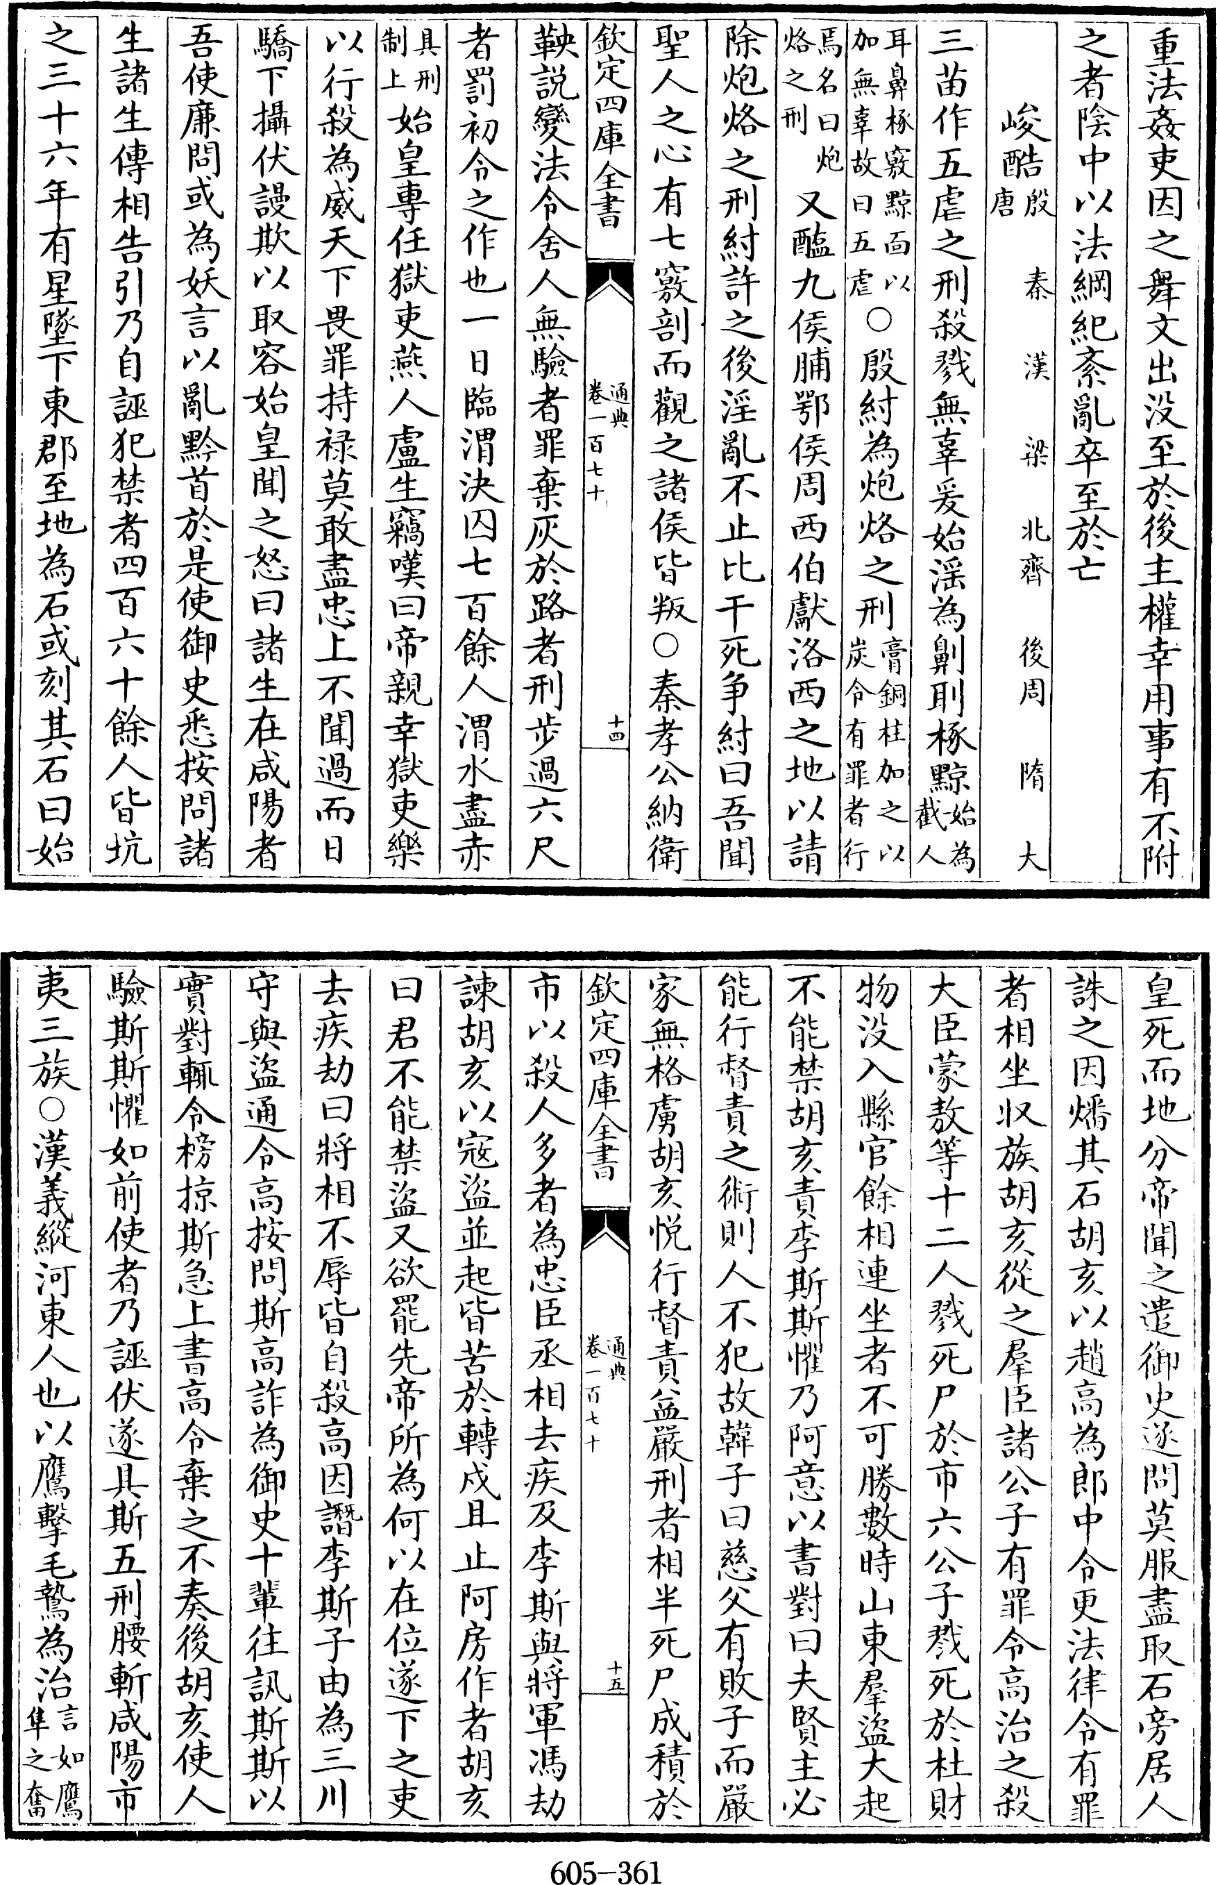 重法姦吏因之舞文出没至於後主權幸用事有不附
之者陰中以法綱紀紊亂卒至於亡
峻酷殷 秦 漢 梁 北齊 後周 隋 大唐
三苗作五虐之刑殺戮無辜爰始淫為劓刵椓黥始為截人
耳鼻椓竅黥面以加無辜故曰五虐○殷紂為炮烙之刑膏銅柱加之以炭令有罪者行
焉名曰炮烙之刑又醢九侯脯鄂侯周西伯獻洛西之地以請
除炮烙之刑紂許之後淫亂不止比干死争紂曰吾聞
聖人之心有七竅剖而觀之諸侯皆叛○秦孝公納衛
欽定四庫全書 通典卷一百七十 十四
鞅説變法令舍人無驗者罪棄灰於路者刑步過六尺
者罰初令之作也一日臨渭決囚七百餘人渭水盡赤
具刑制上始皇專任獄吏燕人盧生竊嘆曰帝親幸獄吏樂
以行殺為威天下畏罪持禄莫敢盡忠上不聞過而日
驕下攝伏謾欺以取容始皇聞之怒曰諸生在咸陽者
吾使廉問或為妖言以亂黔首於是使御史悉按問諸
生諸生傳相告引乃自誣犯禁者四百六十餘人皆坑
之三十六年有星墜下東郡至地為石或刻其石曰始
皇死而地分帝聞之遣御史遂問莫服盡取石旁居人
誅之因燔其石胡亥以趙高為郎中令更法律令有罪
者相坐収族胡亥從之羣臣諸公子有罪令高治之殺
大臣蒙敖等十二人戮死尸於市六公子戮死於杜財
物没入縣官餘相連坐者不可勝數時山東羣盗大起
不能禁胡亥責李斯斯懼乃阿意以書對曰夫賢主必
能行督責之術則人不犯故韓子曰慈父有敗子而嚴
家無格虜胡亥悦行督責益嚴刑者相半死尸成積於
欽定四庫全書 通典卷一百七十 十五
市以殺人多者為忠臣丞相去疾及李斯與將軍馮劫
諫胡亥以寇盜並起皆苦於轉戍且止阿房作者胡亥
曰君不能禁盜又欲罷先帝所為何以在位遂下之吏
去疾劫曰將相不辱皆自殺高因譖李斯子由為三川
守與盜通令高按問斯高詐為御史十輩往訊斯斯以
實對輒令榜掠斯急上書高令棄之不奏後胡亥使人
驗斯斯懼如前使者乃誣伏遂具斯五刑腰斬咸陽市
夷三族○漢義縱河東人也以鷹擊毛鷙為治言如鷹隼之奮
605-361